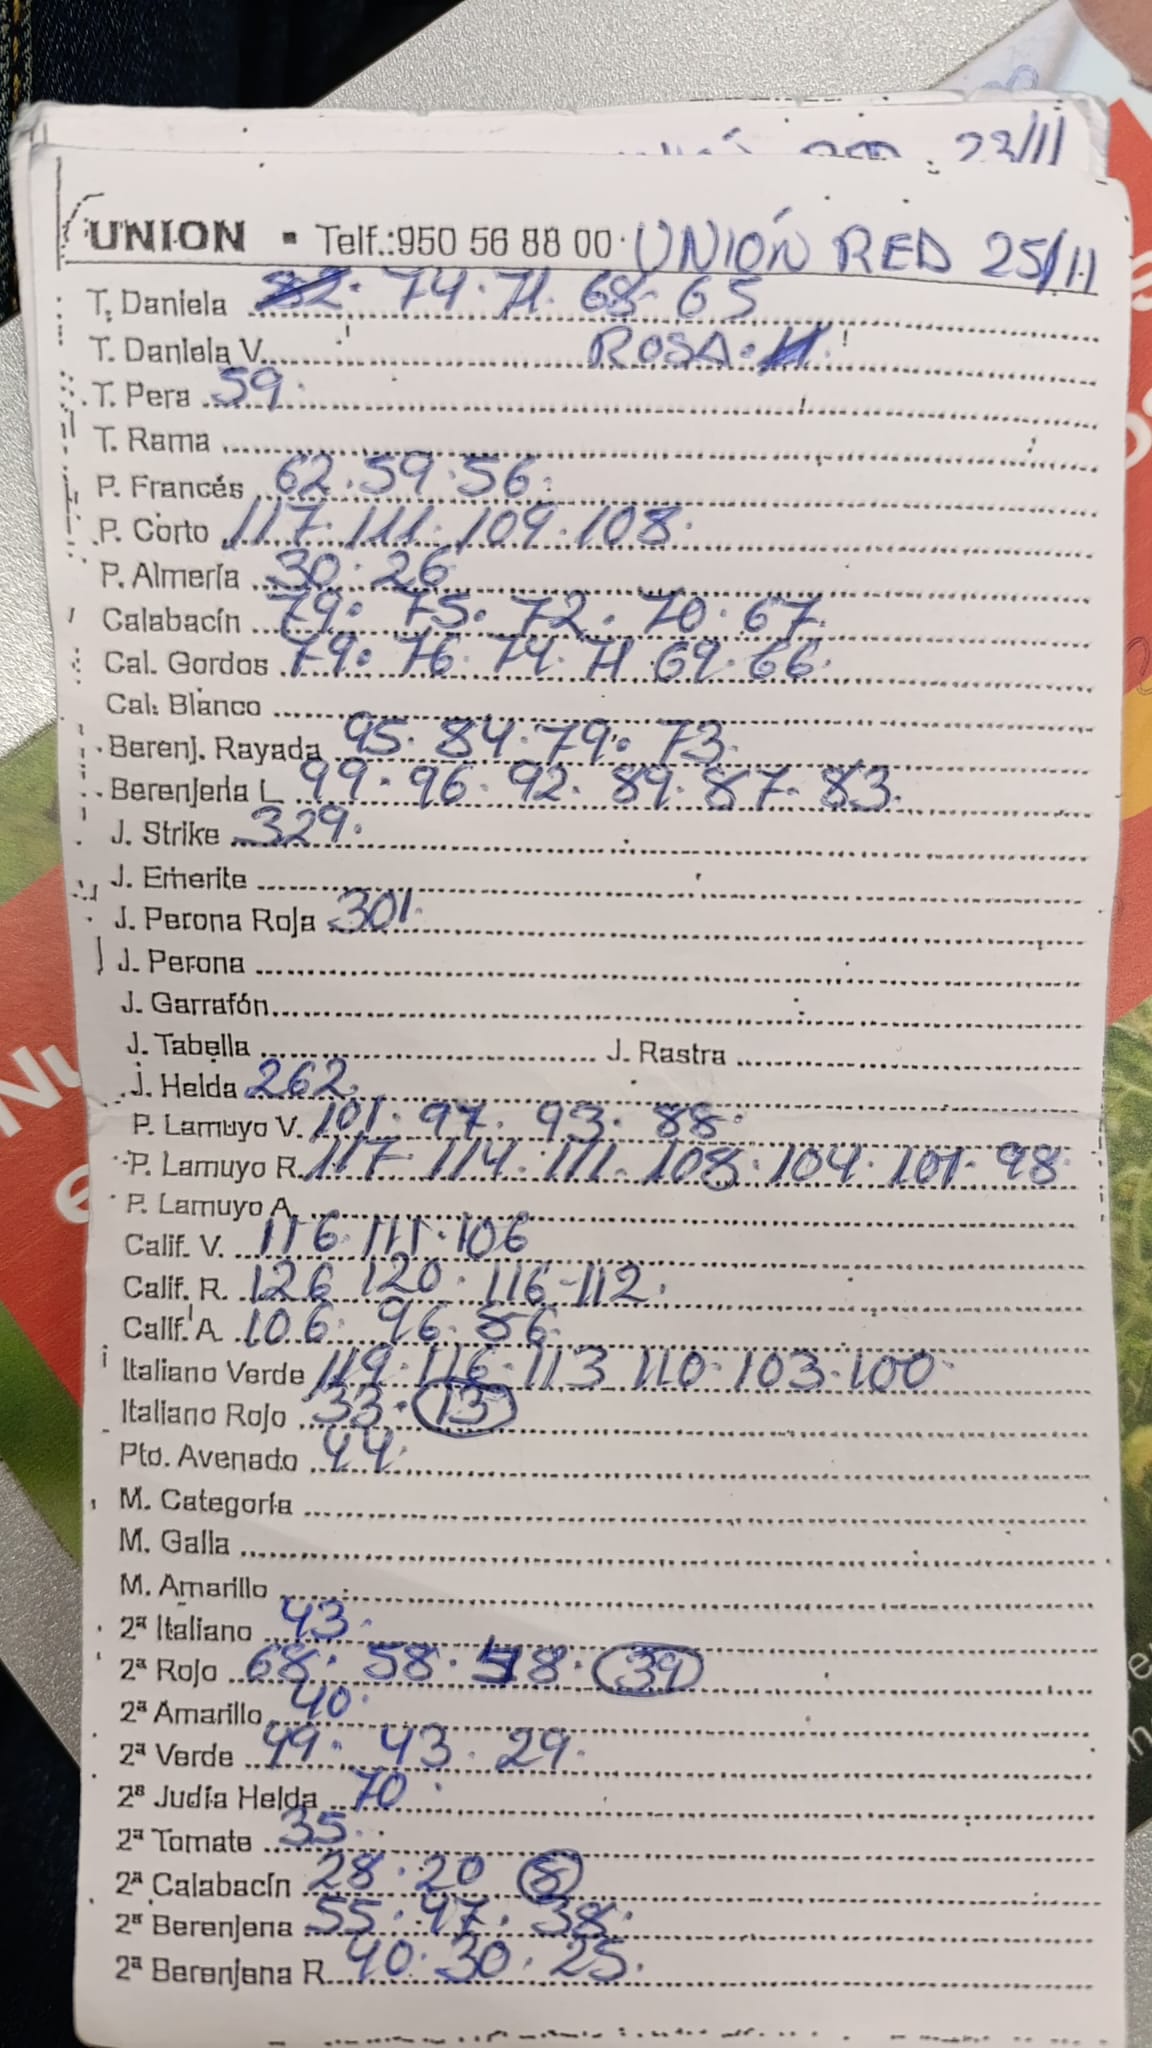 23/11
UNION ▪ Telf.:950 56 88 00 · UNIÓN RED 25/11
T. Daniela 82 · 74 · 71 · 68 · 65
T. Daniela V. ROSA ·
T. Pera 59 ·
T. Rama
P. Francés 62 · 59 · 56 ·
P. Corto 117 · 111 · 109 · 108 ·
P. Almería 30 · 26
Calabacín 79 · 75 · 72 · 70 · 67
Cal. Gordos 79 · 76 · 74 · 71 · 69 · 66 ·
Cal. Blanco
Berenj. Rayada 95 · 84 · 79 · 73
Berenjena L 99 · 96 · 92 · 89 · 87 · 83 ·
J. Strike 329 ·
J. Emerite
J. Perona Roja 301 ·
J. Perona
J. Garrafón
J. Tabella J. Rastra
J. Helda 262
P. Lamuyo V. 101 · 97 · 93 · 88 ·
P. Lamuyo R. 117 · 114 · 111 · 108 · 104 · 101 · 98
P. Lamuyo A.
Calif. V. 116 · 111 · 106
Calif. R. 126 120 · 116 - 112 ·
Calif. A. 106 · 96 · 86
Italiano Verde 119 · 116 · 113 110 · 103 · 100 ·
Italiano Rojo 33 · 13
Pto. Avenado 44
M. Categoría
M. Galia
M. Amarillo
2ª Italiano 43 ·
2ª Rojo 68 · 58 · 48 · 39
2ª Amarillo 40 ·
2ª Verde 49 · 43 · 29 ·
2ª Judía Helda 70 ·
2ª Tomate 35 ·
2ª Calabacín 28 · 20 8
2ª Berenjena 55 · 47 · 38 ·
2ª Berenjena R 40 · 30 · 25 ·